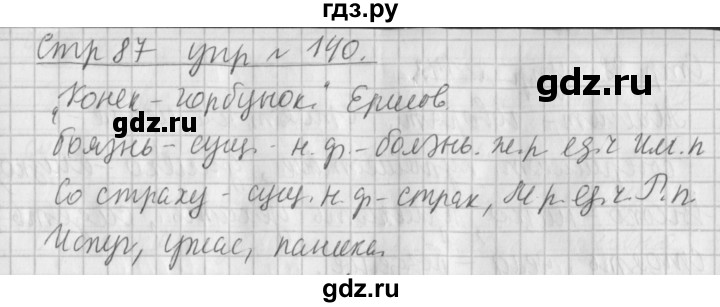 гдз.ру
Стр 87 упр № 140.
"Конек-горбунок." Ершов
гдз.ру
гдз.ру
Боязнь - сущ. - н.ф. - боязнь. ж.р ед.ч Им.п
Со страху - сущ. н.ф - страх, М.р. ед.ч. Р.п
Испуг, ужас, паника.
гдз.ру